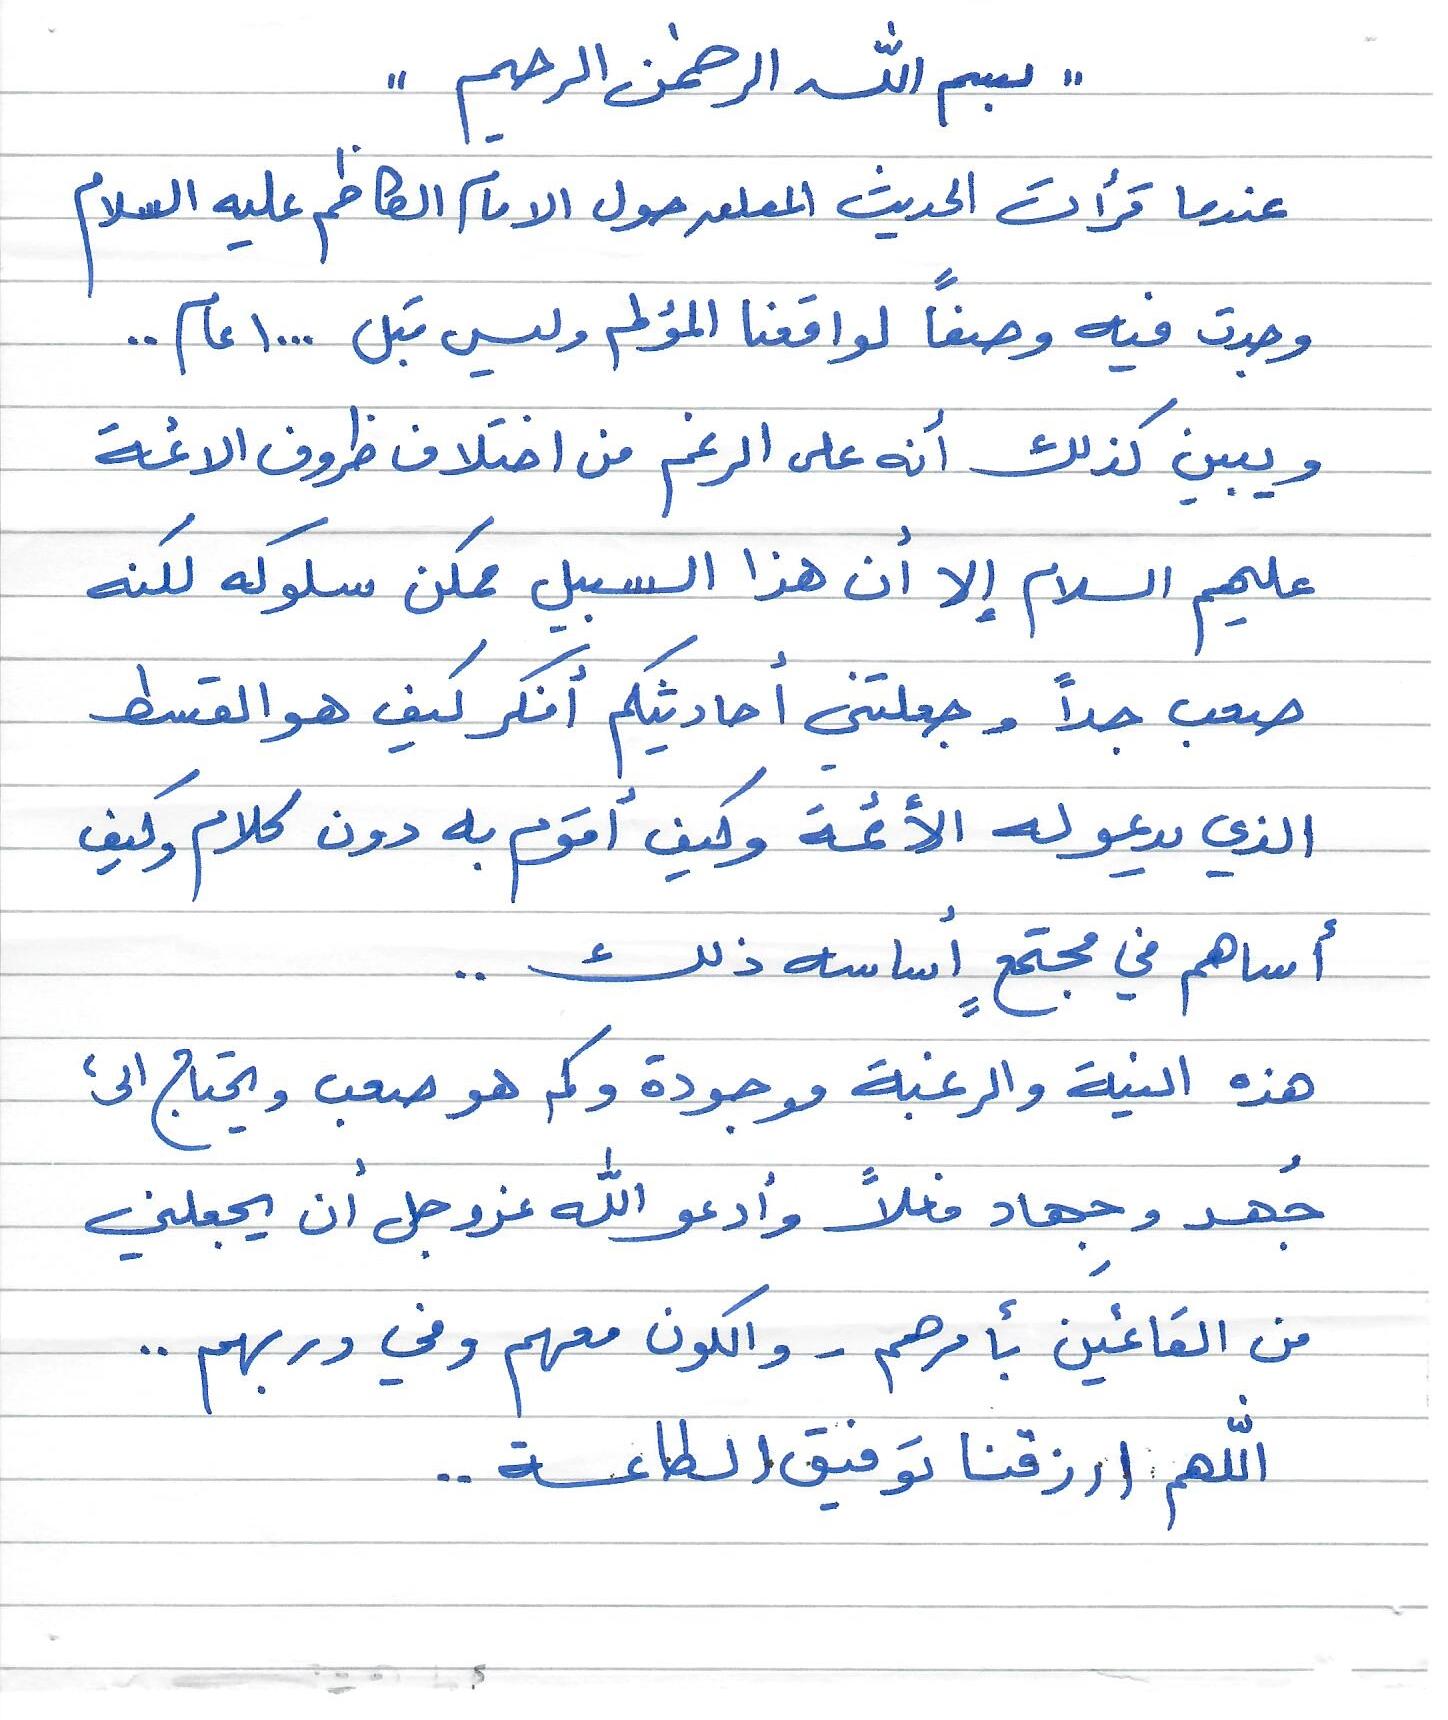 " بسم اللّه الرحمٰن الرحيم "
عندما قرأت الحديث حول الامام الكاظم عليه السلام
وجدت فيه وصفاً لواقعنا المؤلم وليس قبل ١٠٠٠ عام ..
ويبين كذلك أنه على الرغم من اختلاف ظروف الائمة
عليهم السلام إلا أن هذا السبيل ممكن سلوكه لكنه
صعب جداً وجعلتني أحاديثكم أفكر كيف هو القسط
الذي يدعو له الأئمة وكيف أقوم به دون كلام وكيف
أساهم في مجتمعٍ أساسه ذلك ..
هذه النية والرغبة موجودة وكم هو صعب ويحتاج الى
جُهد وجِهاد فعلاً وأدعو اللّه عز وجل أن يجعلني
من القائمين بأمرهم - والكون معهم وفي دربهم ..
اللّهم ارزقنا توفيق الطاعة ..